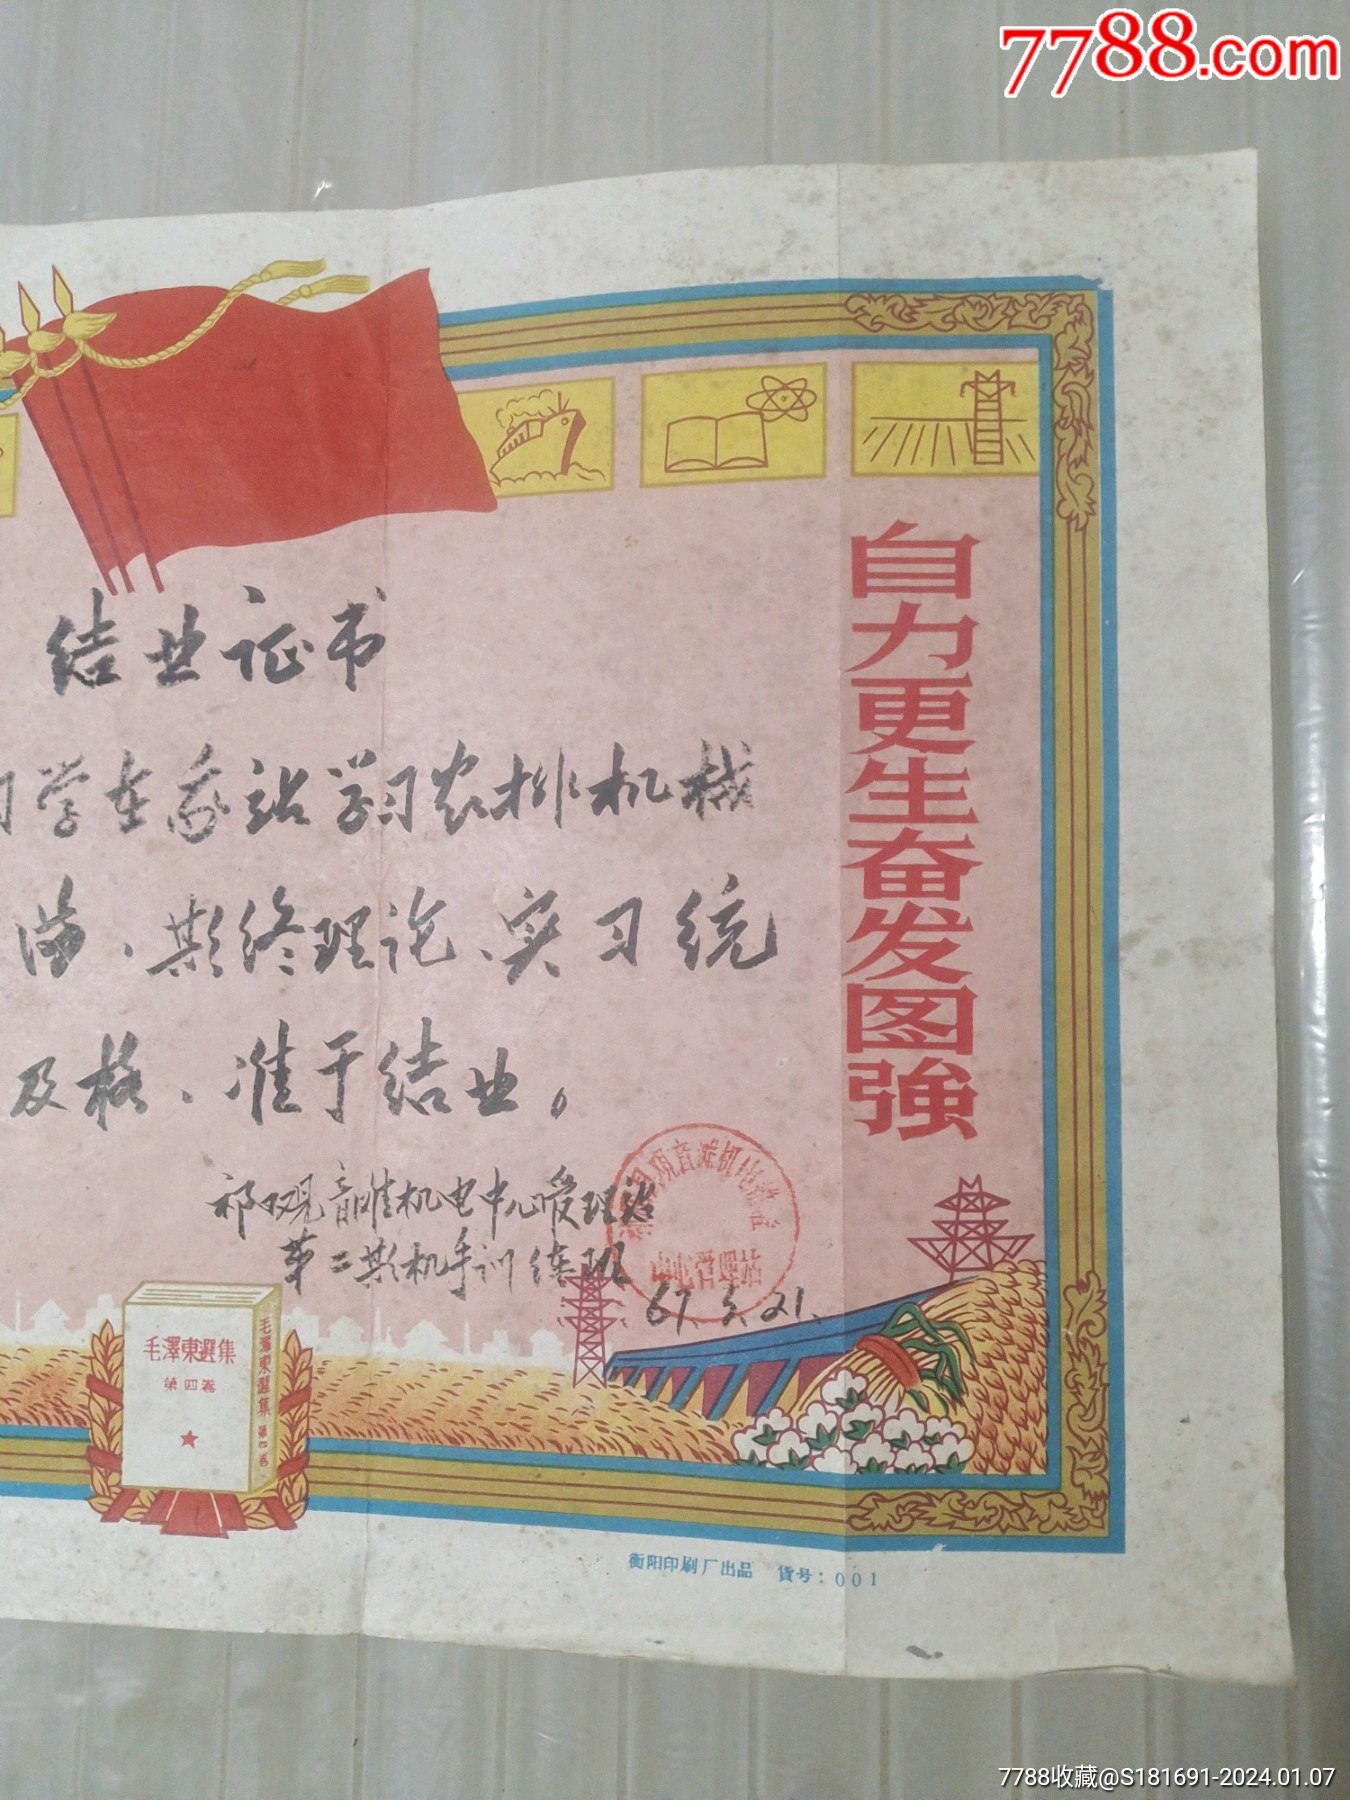 7788.com
自力更生奋发图強
结业证书
同学在我站学习农排机械
满、期终理论、实习统
及格、准于结业。
祁阳观音滩机电中心管理站
第二期机手训练班
67.5.21.
毛澤東選集
第四卷
毛澤東選集 第四卷
衡阳印刷厂出品 貨号：001
7788收藏@S181691-2024.01.07